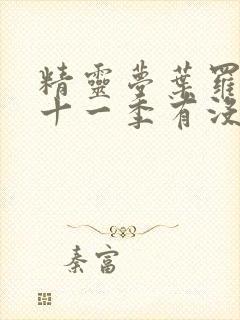 精靈夢葉羅
十一季有沒
秦富